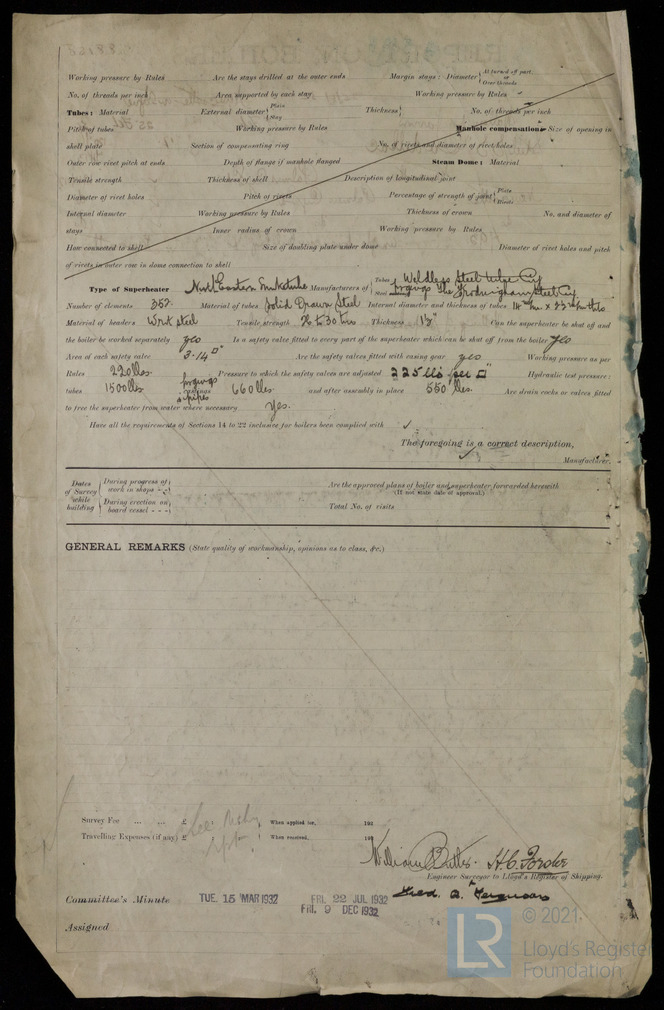 Working pressure by Rules Are the stays drilled at the outer ends Margin stays: Diameter { At turned off part, or Over threads
No. of threads per inch Area supported by each stay Working pressure by Rules
Tubes: Material External diameter { Plain Stay Thickness { No. of threads per inch
Pitch of tubes Working pressure by Rules Manhole compensation: Size of opening in
shell plate Section of compensating ring No. of rivets and diameter of rivet holes
Outer row rivet pitch at ends Depth of flange if manhole flanged Steam Dome: Material
Tensile strength Thickness of shell Description of longitudinal joint
Diameter of rivet holes Pitch of rivets Percentage of strength of joint { Plate Rivets
Internal diameter Working pressure by Rules Thickness of crown No. and diameter of
stays Inner radius of crown Working pressure by Rules
How connected to shell Size of doubling plate under dome Diameter of rivet holes and pitch
of rivets in outer row in dome connection to shell
Type of Superheater North Eastern Smoketube Manufacturers of { Tubes Weldless Steel Tube Coy
Steel forgings The Frodingham Steel Coy
Number of elements 352 Material of tubes Solid Drawn Steel Internal diameter and thickness of tubes
Material of headers Wrot steel Tensile strength 26 to 30 tons Thickness Can the superheater be shut off and
the boiler be worked separately yes Is a safety valve fitted to every part of the superheater which can be shut off from the boiler yes
Area of each safety valve 3.14 □" Are the safety valves fitted with easing gear yes Working pressure as per
Rules 220 lbs. Pressure to which the safety valves are adjusted 225 lbs per □" Hydraulic test pressure:
tubes 1500 lbs forgings & pipes castings 660 lbs and after assembly in place 550 lbs. Are drain cocks or valves fitted
to free the superheater from water where necessary yes.
Have all the requirements of Sections 14 to 22 inclusive for boilers been complied with ✓
The foregoing is a correct description,
Manufacturer.
Dates of Survey while building { During progress of work in shops - - { During erection on board vessel - - - Are the approved plans of boiler and superheater forwarded herewith
(If not state date of approval.)
Total No. of visits
GENERAL REMARKS (State quality of workmanship, opinions as to class, &c.)
Survey Fee ... ... £ When applied for, 193
Travelling Expenses (if any) £ When received, 193
William Butler. H.C. Forster
Engineer Surveyor to Lloyd's Register of Shipping.
Fred. A. Ferguson
Committee's Minute TUE. 15 MAR 1932 FRI. 22 JUL 1932
FRI. 9 DEC 1932
Assigned
LR © 2021
Lloyd's Register
Foundation